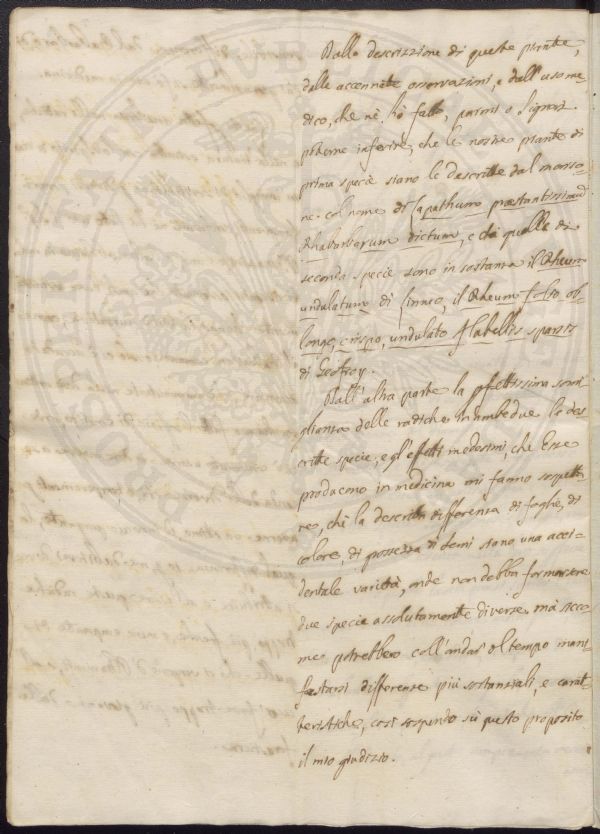 Dalla descrizzione di queste piante,
dalle accennate osservazioni, e dall'uso me-
dico, che nè hò fatto, parmi o Signori
poterne inferire, che le nostre piante di
prima specie siano le descritte dal morio-
ne col nome di Lapathum præstantissimum
Rhabarbarum dictum, e che quelle di
seconda specie sono in sostanza il Rheum
undulatum di Linneo, il Rheum folio ob-
longo, crispo, undulato flabellis sparsis
di Geofroy.
Dall'altra parte la pfettissima somi-
glianza delle radiche in ambedue le des-
critte specie, e gl'effetti medesimi, che Esse
producono in medicina mi fanno sospetta-
re, chè la descritta differenza di foglie, di
colore, di grossezza di semi siano una acci-
dentale varietà, onde non debba formarsene
due specie assolutamente diverse, mà sicco-
me potrebbero coll'andar del tempo mani-
festarsi differenze più sostanziali, e carat-
teristiche, così sospendo sù questo proposito
il mio giudizio.